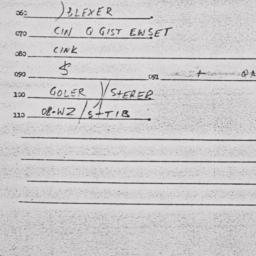 060 BLEXER
070 CIN Q GIST EWSET
080 CINK
090 $ 091 +
100 GOLER / STERER
110 08-WZ / S+TIB